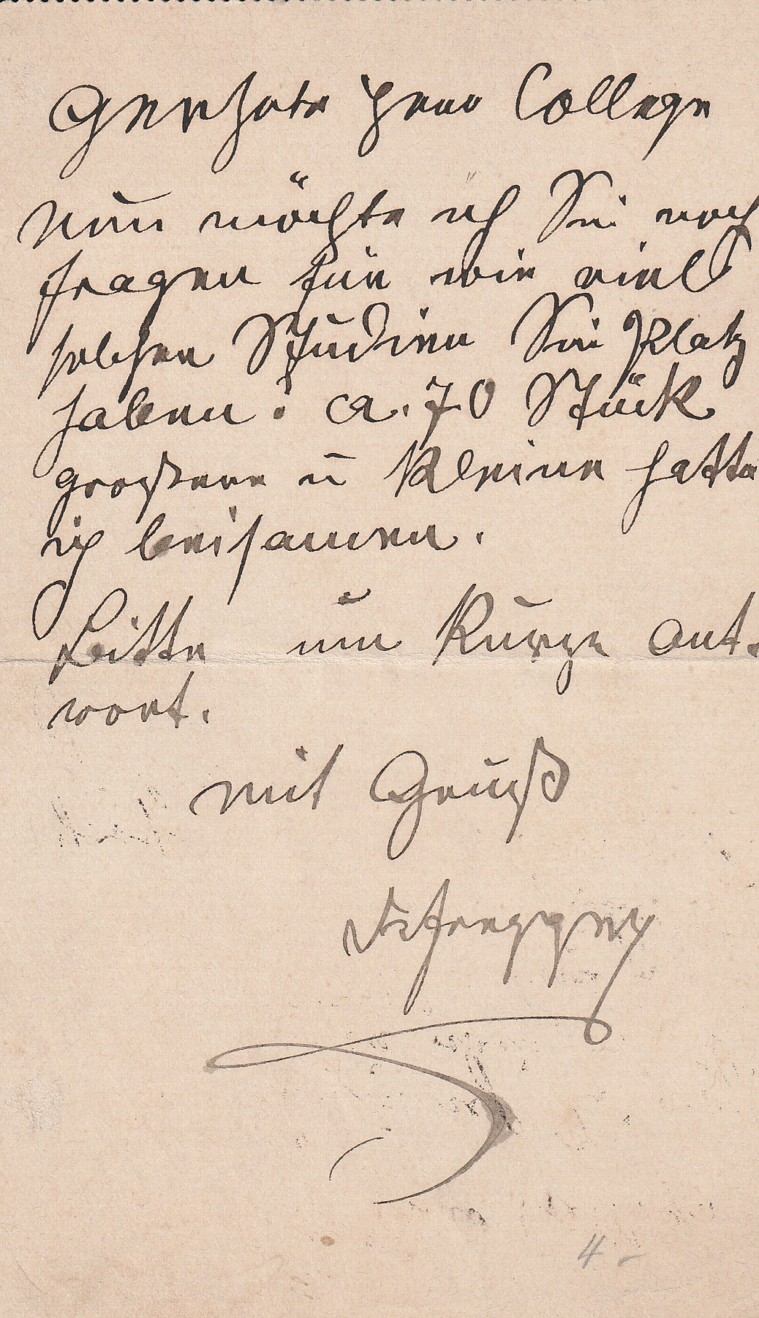 Geehrter Herr College
Nun möchte ich Sie noch
fragen für wie viel
solcher Studien Sie Platz
haben? ca. 70 Stück
grössere u kleine hatte
ich beisamen.
Bitte um kurze Ant-
wort.
Mit Gruß
Defregger
4 -